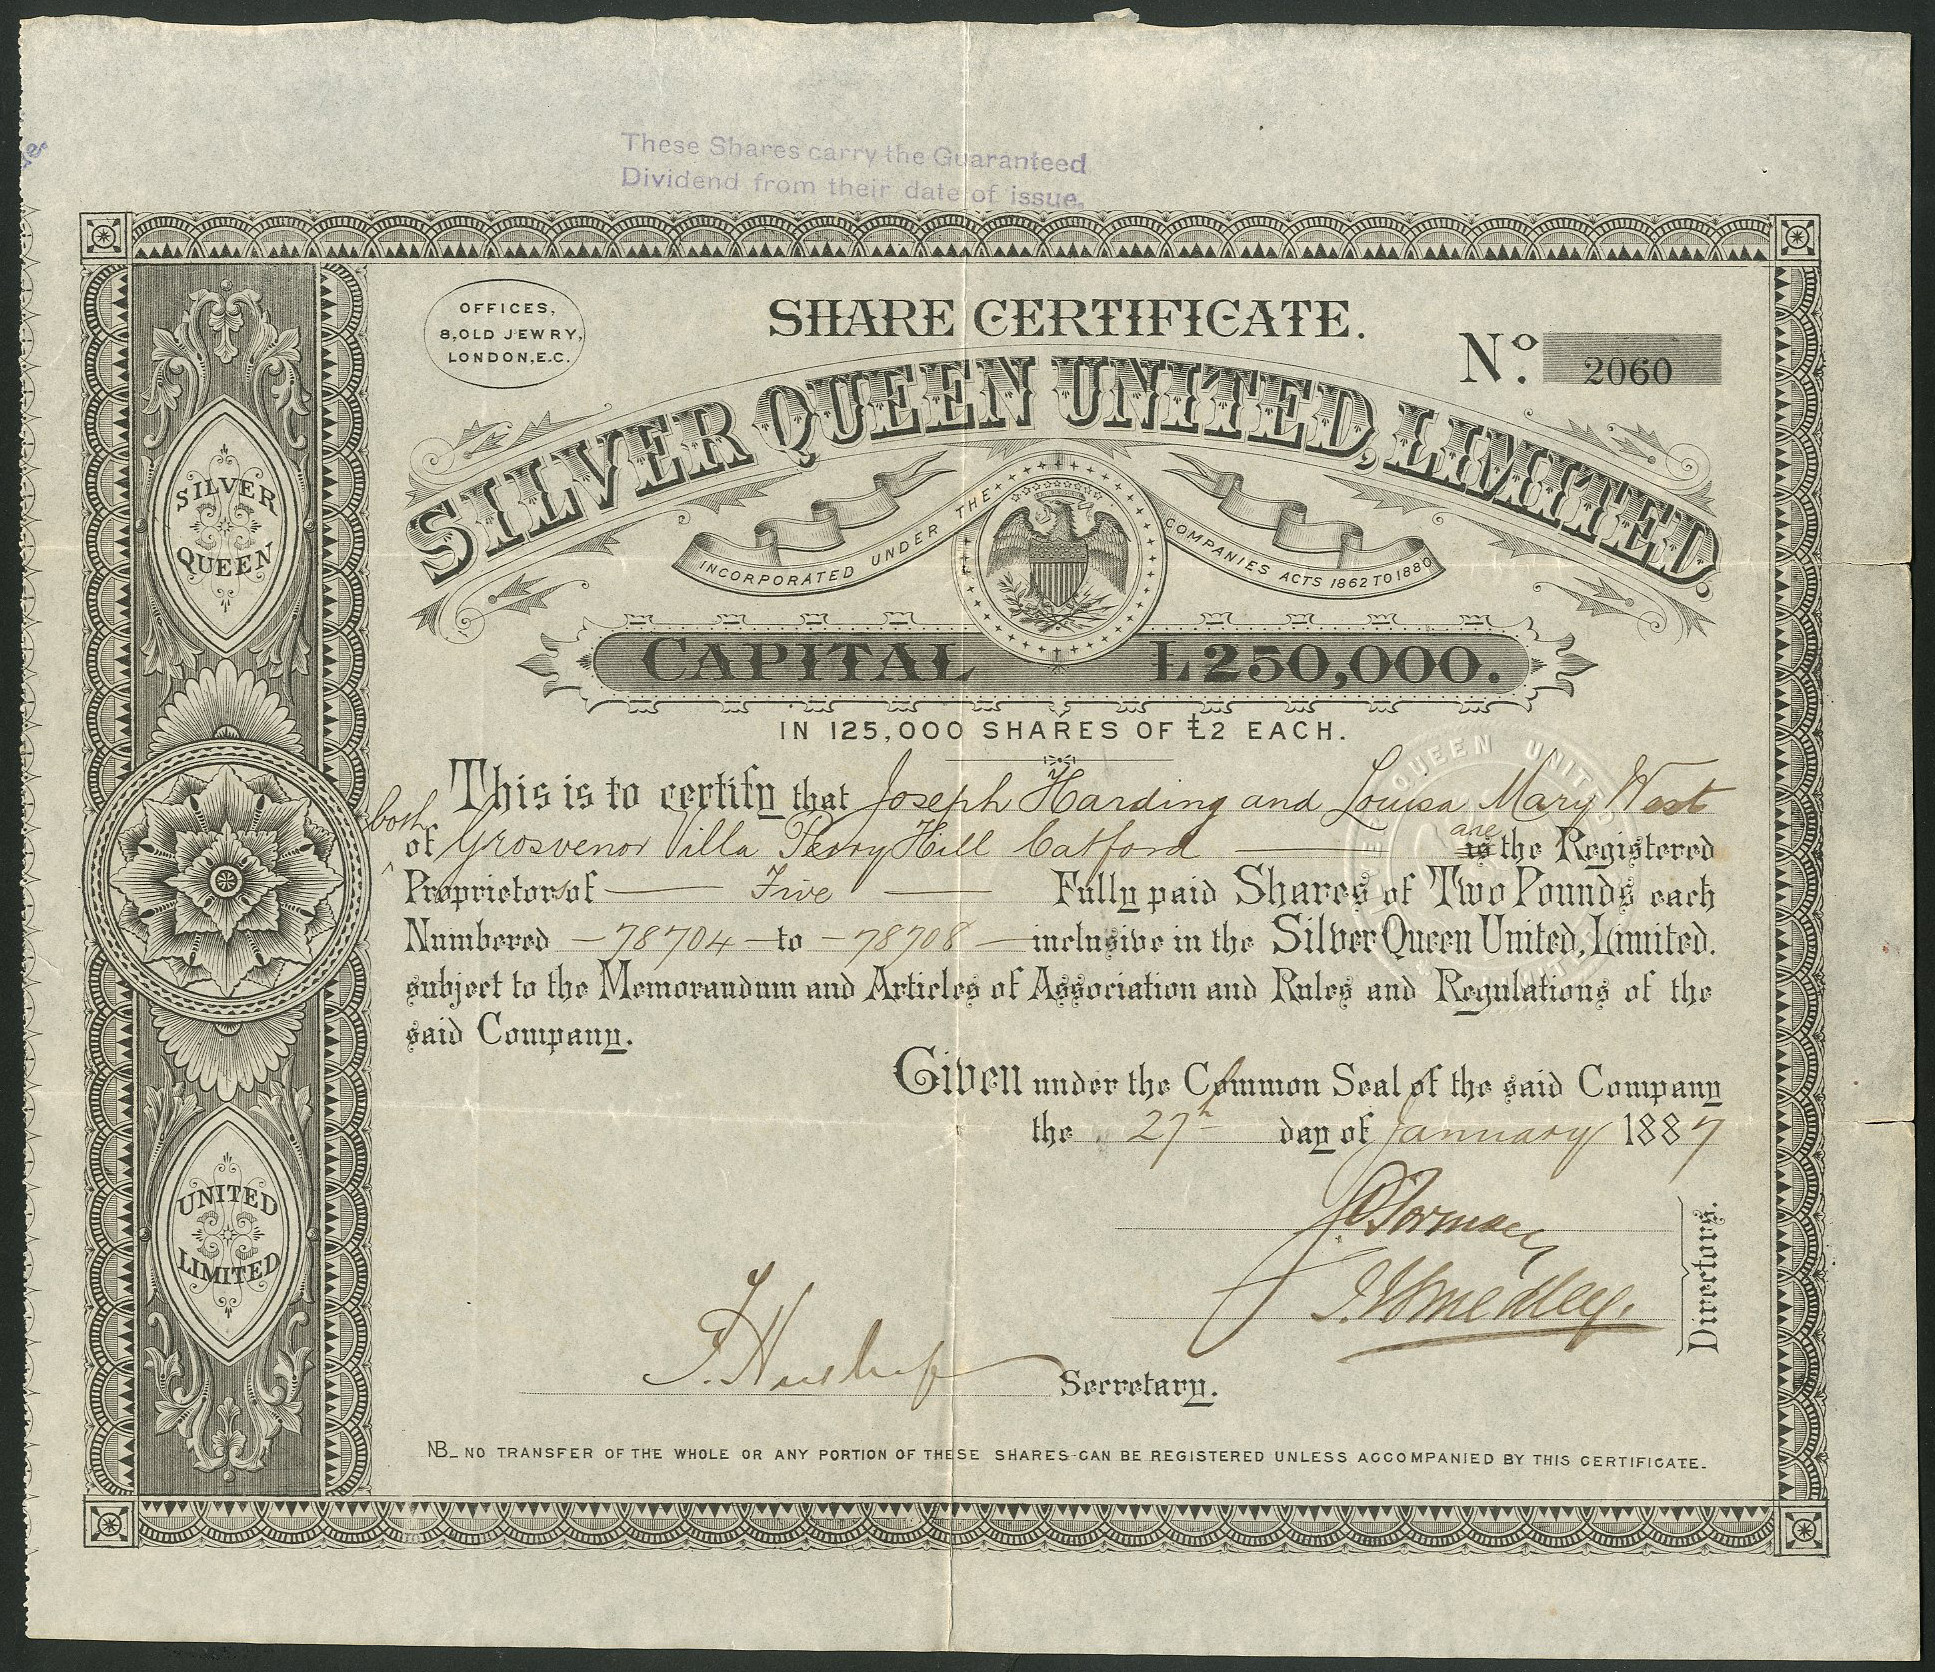 These Shares carry the Guaranteed
Dividend from their date of issue.
OFFICES,
8, OLD JEWRY,
LONDON, E.C.
SHARE CERTIFICATE.
No. 2060
SILVER QUEEN UNITED, LIMITED.
INCORPORATED UNDER THE COMPANIES ACTS 1862 TO 1880
CAPITAL £250,000.
IN 125,000 SHARES OF £2 EACH.
This is to certify that Joseph Harding and Louisa Mary West
both of Grosvenor Villa Perry Hill Catford are is the Registered
Proprietors of Five Fully paid Shares of Two Pounds each
Numbered 78704 to 78708 inclusive in the Silver Queen United, Limited.
subject to the Memorandum and Articles of Association and Rules and Regulations of the
said Company.
Given under the Common Seal of the said Company
the 27th day of January 1887
J. Smedley.
Directors.
Secretary.
NB_ NO TRANSFER OF THE WHOLE OR ANY PORTION OF THESE SHARES CAN BE REGISTERED UNLESS ACCOMPANIED BY THIS CERTIFICATE.
SILVER
QUEEN
UNITED
LIMITED
QUEEN UNITED